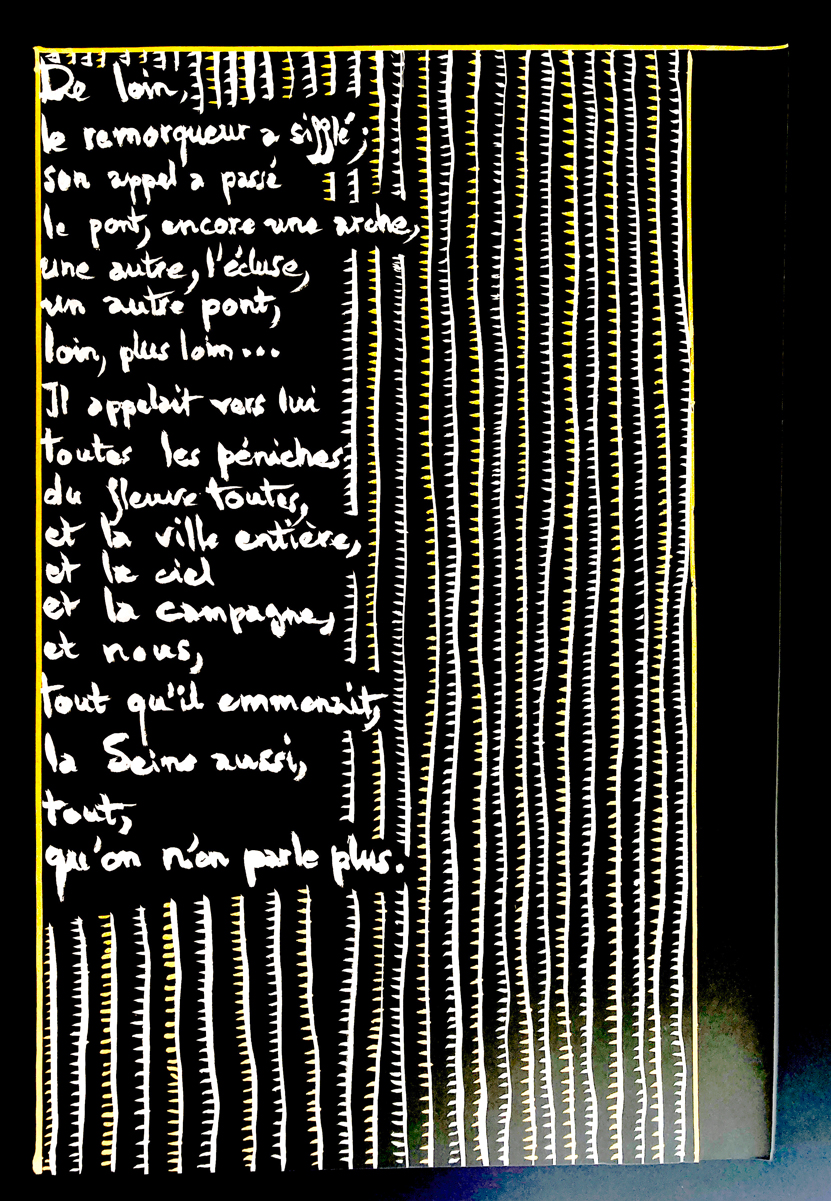 De loin,
le remorqueur a sifflé;
son appel a passé
le pont, encore une arche,
une autre, l'écluse,
un autre pont,
loin, plus loin...
Il appelait vers lui
toutes les péniches
du fleuve toutes,
et la ville entière,
et le ciel
et la campagne,
et nous,
tout qu'il emmenait,
la Seine aussi,
tout,
qu'on n'en parle plus.